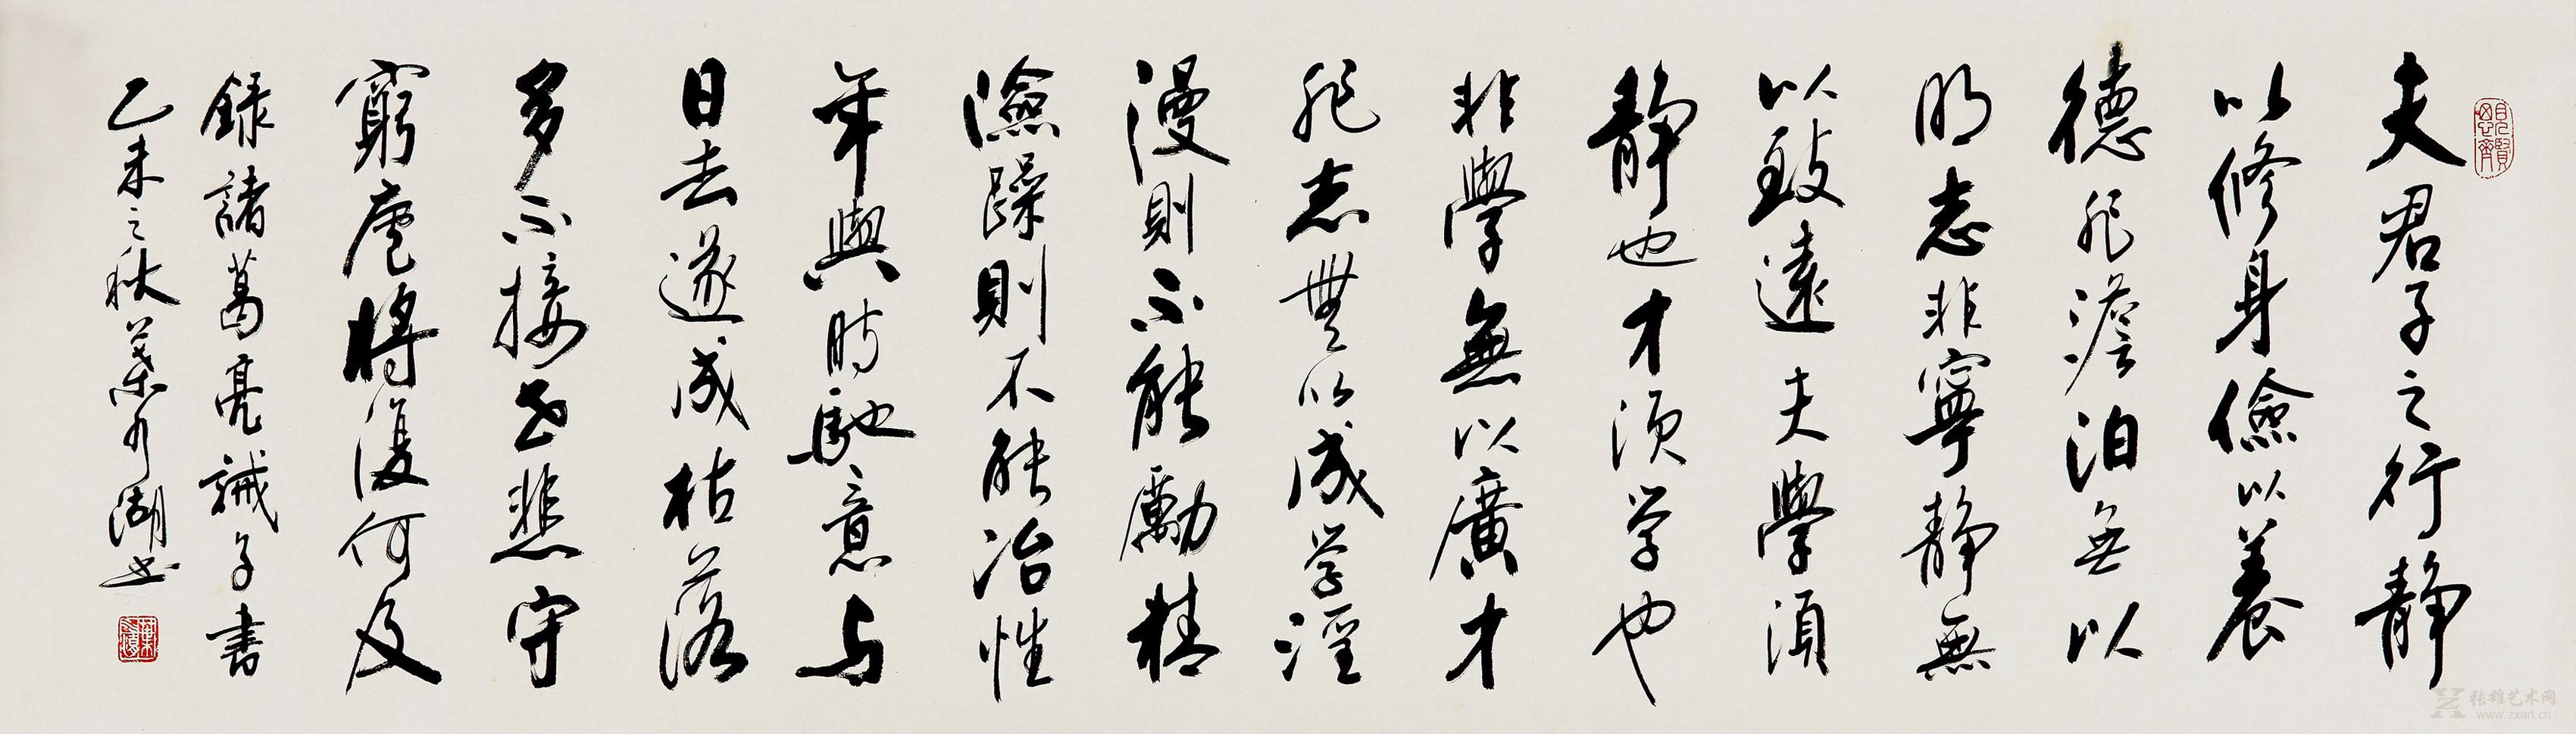 見賢思齊
夫君子之行静
以修身儉以養
德非澹泊無以
明志非寧静無
以致遠夫學須
静也才須学也
非學無以廣才
非志無以成学淫
漫則不能勵精
險躁則不能冶性
年與時馳意与
日去遂成枯落
多不接世悲守
窮廬將復何及
録諸葛亮誡子書
乙未之秋葉湖书
张雄艺术网
www.zxart.cn